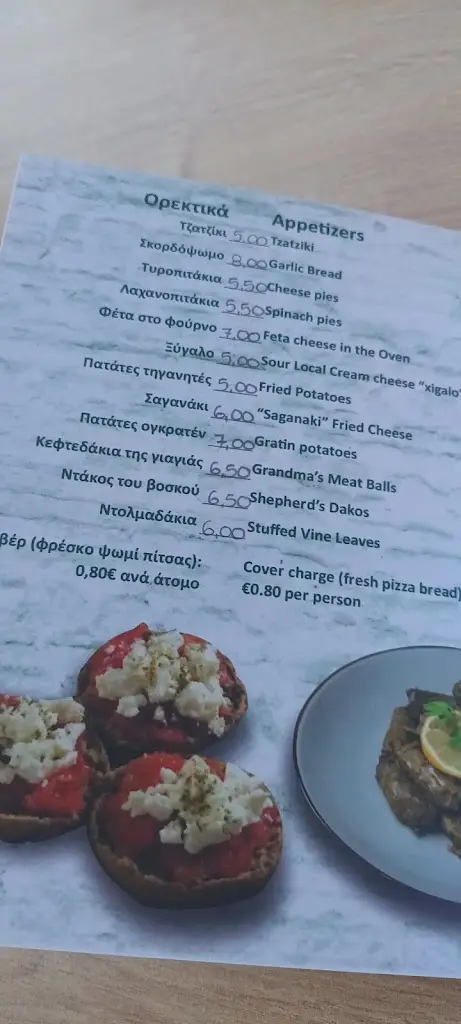 Ορεκτικά Appetizers
Τζατζίκι 5,00 Tzatziki
Σκορδόψωμο 8,00 Garlic Bread
Τυροπιτάκια 5,50 Cheese pies
Λαχανοπιτάκια 5,50 Spinach pies
Φέτα στο φούρνο 7,00 Feta cheese in the Oven
Ξύγαλο 5,00 Sour Local Cream cheese "xigalo"
Πατάτες τηγανητές 5,00 Fried Potatoes
Σαγανάκι 6,00 "Saganaki" Fried Cheese
Πατάτες ογκρατέν 7,00 Gratin potatoes
Κεφτεδάκια της γιαγιάς 6,50 Grandma's Meat Balls
Ντάκος του βοσκού 6,50 Shepherd's Dakos
Ντολμαδάκια 6,00 Stuffed Vine Leaves
βέρ (φρέσκο ψωμί πίτσας): Cover charge (fresh pizza bread)
0,80€ ανά άτομο €0.80 per person